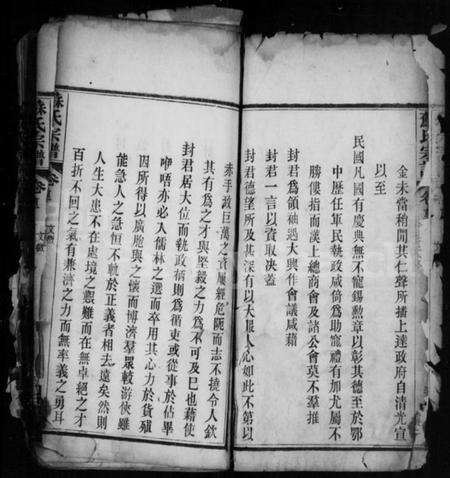 金未嘗稍閒其仁聲所播上達政府自清光宣
以至
民國凡國有慶典無不寵錫勲章以彰其德至於鄂
中歷任軍民執政咸倚為助寵禮有加尤屬不
勝僂指而漢上總商會及諸公會莫不羣推
封君為領袖遇大興作會議咸藉
封君一言以資取決蓋
封君德望所及其深有以大服人心如此不第以
赤手致巨萬之資屢經危闘而志不撓令人欽
其有為之才與堅毅之力為不可及巳也藉使
封君居大位而執政柄則為循吏或從事於佔畢
咿唔亦必入儒林之選而卒用其心力於貨殖
因所得以廣胞與之懷而博濟羣眾較游俠雖
能急人之急恒不軌於正義者相去遠矣然則
人生大患不在處境之艱難而在無卓絕之才
百折不回之氣有兼濟之力而無率義之勇耳
蘇氏宗譜
卷
蘇氏宗譜
卷